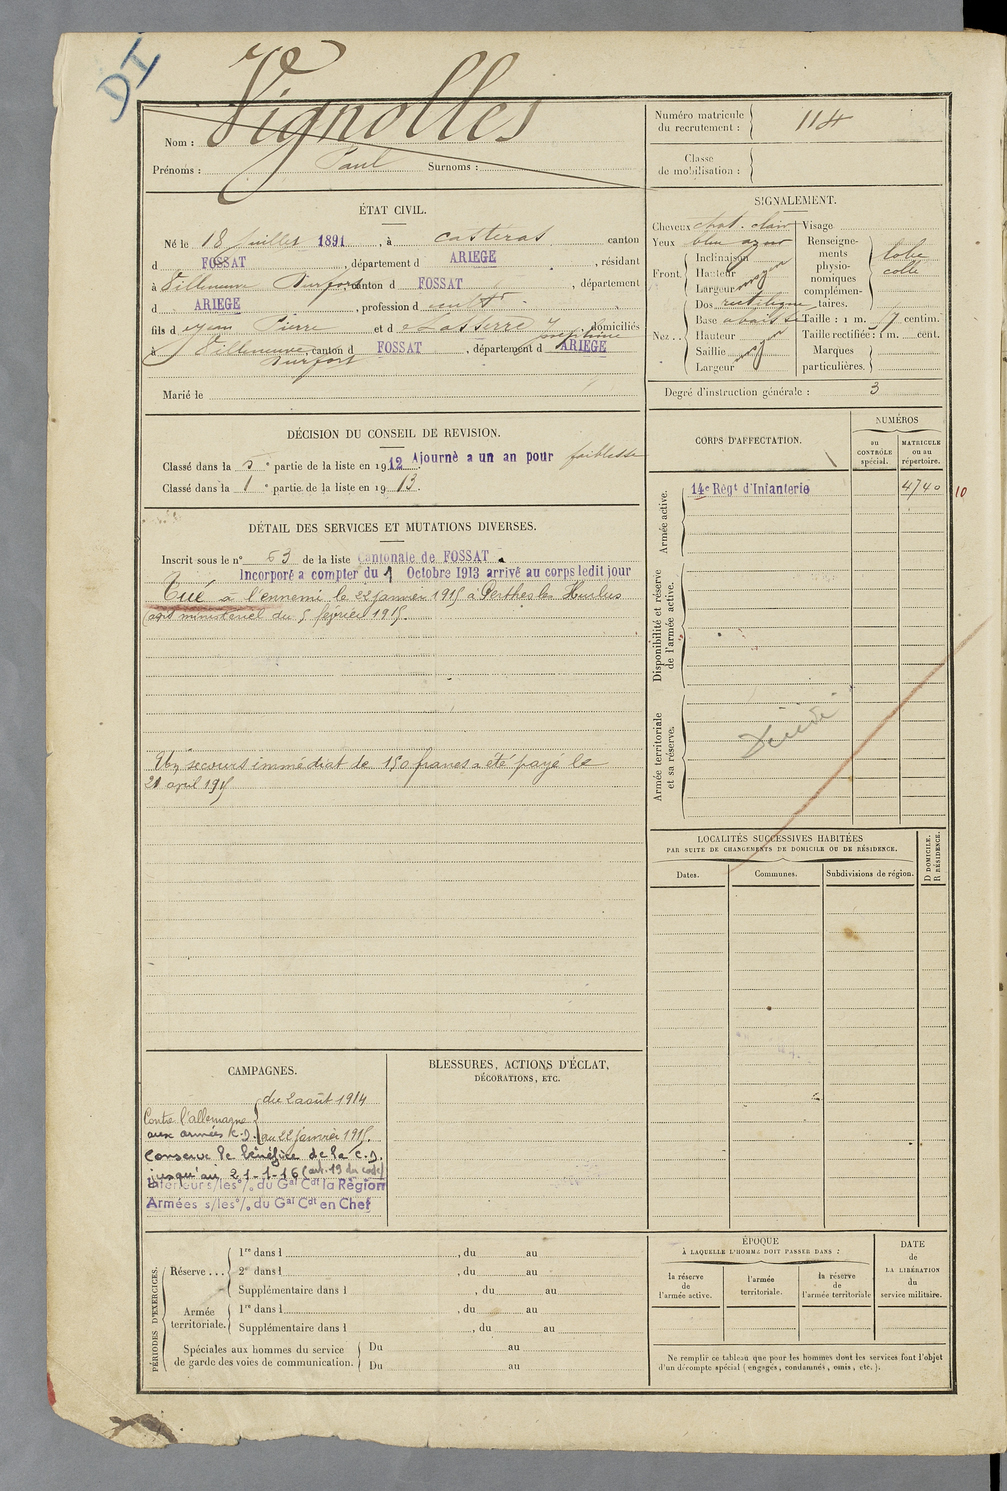 DI
Nom : Vignolles
Prénoms : Paul Surnoms :
Numéro matricule du recrutement : 114
Classe de mobilisation :
ÉTAT CIVIL.
Né le 18 juillet 1891, à Casteras canton
d FOSSAT, département d ARIEGE, résidant
à Villeneuve Durfort, canton d FOSSAT, département
d ARIEGE, profession de cultr
fils de Jean Pierre et de Lasserre Joséphine, domiciliés
à Villeneuve Durfort, canton d FOSSAT, département d ARIEGE
Marié le
SIGNALEMENT.
Cheveux chat. clair
Yeux bleu azur
Front
Inclinaison
Hauteur moyen
Largeur
Nez
Dos rectiligne
Base abaissée
Hauteur
Saillie moyen
Largeur
Visage
Renseignements physionomiques complémentaires. lobe collé
Taille : 1 m. 7 centim.
Taille rectifiée : 1 m. cent.
Marques particulières.
Degré d'instruction générale : 3
DÉCISION DU CONSEIL DE REVISION.
Classé dans la 5e partie de la liste en 1912 Ajourné a un an pour faiblesse
Classé dans la 1e partie de la liste en 1913.
DÉTAIL DES SERVICES ET MUTATIONS DIVERSES.
Inscrit sous le n° 53 de la liste Cantonale de FOSSAT.
Incorporé a compter du 1 Octobre 1913 arrivé au corps ledit jour
Tué à l'ennemi le 22 janvier 1915 à Perthes les Hurlus
(avis ministériel du 5 février 1915.
Un secours immédiat de 150 francs a été payé le
21 avril 1915
CORPS D'AFFECTATION.
NUMÉROS
au CONTRÔLE spécial.
MATRICULE ou au répertoire.
Armée active.
14e Régt d'Infanterie 4740 10
Disponibilité et réserve de l'armée active.
Armée territoriale et sa réserve.
Décédé
LOCALITÉS SUCCESSIVES HABITÉES
PAR SUITE DE CHANGEMENTS DE DOMICILE OU DE RÉSIDENCE.
Dates. Communes. Subdivisions de région. D DOMICILE. R RÉSIDENCE.
CAMPAGNES.
Contre l'allemagne du 2 août 1914
aux armées C.D. au 22 janvier 1915.
Conserve le bénéfice de la C.D.
jusqu'au 21-1-16 (art. 13 du code)
Intérieur s/les o/. du Gal Cdt la Région
Armées s/les o/. du Gal Cdt en Chef
BLESSURES, ACTIONS D'ÉCLAT,
DÉCORATIONS, ETC.
PÉRIODES D'EXERCICES.
Réserve ...
1re dans l , du au
2e dans l , du au
Supplémentaire dans l , du au
Armée territoriale.
1re dans l , du au
Supplémentaire dans l , du au
Spéciales aux hommes du service de garde des voies de communication.
Du au
Du au
ÉPOQUE
À LAQUELLE L'HOMME DOIT PASSER DANS :
la réserve de l'armée active.
l'armée territoriale.
la réserve de l'armée territoriale
DATE de LA LIBÉRATION du service militaire.
Ne remplir ce tableau que pour les hommes dont les services font l'objet
d'un décompte spécial (engagés, condamnés, omis, etc.).